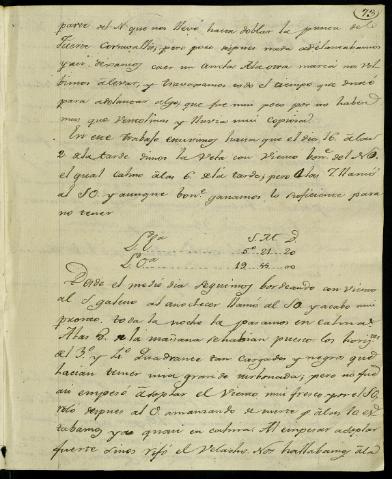 73
parte del N. que nos llevó hasta doblar la punta de
Fuerte Cornwallis, pero poco despues nada adelantabamos
y asi dexamos caer un Ancla. A la otra marea nos vol
bimos a levar, y travajamos todo el tiempo que duró
para adelantar algo, que fue mui poco por no haber
mas que Ventolinas y lluvia mui copiosa.
En este trabajo estuvimos hasta que el dia 16 á las
2 de la tarde dimos la Vela con Viento bonº. del N.
el qual calmó á las 6 de la tarde; pero á las 7 llamó
al SO. y aunque bonº. ganamos lo suficiente para
no tener
S. M. D.
5º.. 21.. 20
Lº. Oª 19.. 44.. 00
Desde el medio dia seguimos bordeando con viento
al S galeno al anochecer llamó al SO. y acabó mui
pronto, toda la noche la pasamos en calma.
A las 8 de la mañana se habian puesto los horizᵗᵉˢ
del 3º. y 4º. Quadrante tan cargados y negros que
hacian temer una grande turbonada; pero no fue
asi empesó á soplar el Viento mui fresco por el SO.
roló despues al O. amainando de suerte q. á las 10 es
tabamos ya quasi en calma. Al empesar á soplar
fuerte rifó el Velacho. Nos hallabamos á la